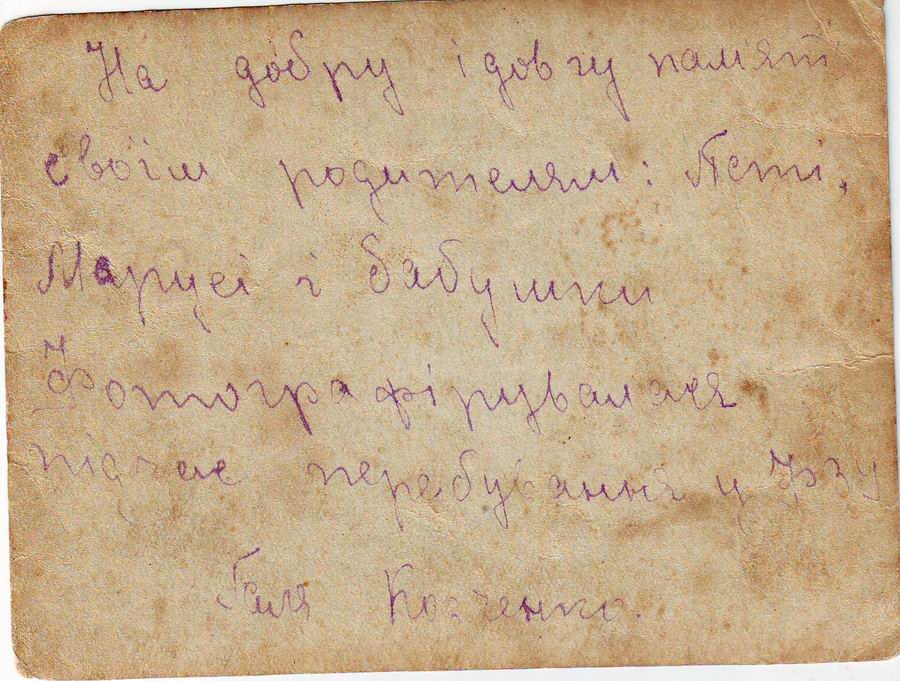 На добру і довгу памʼяті
своїм родителям: Петі,
Марусі і бабушки
Фотографірувалася
підчас перебування у ФЗУ
Галя